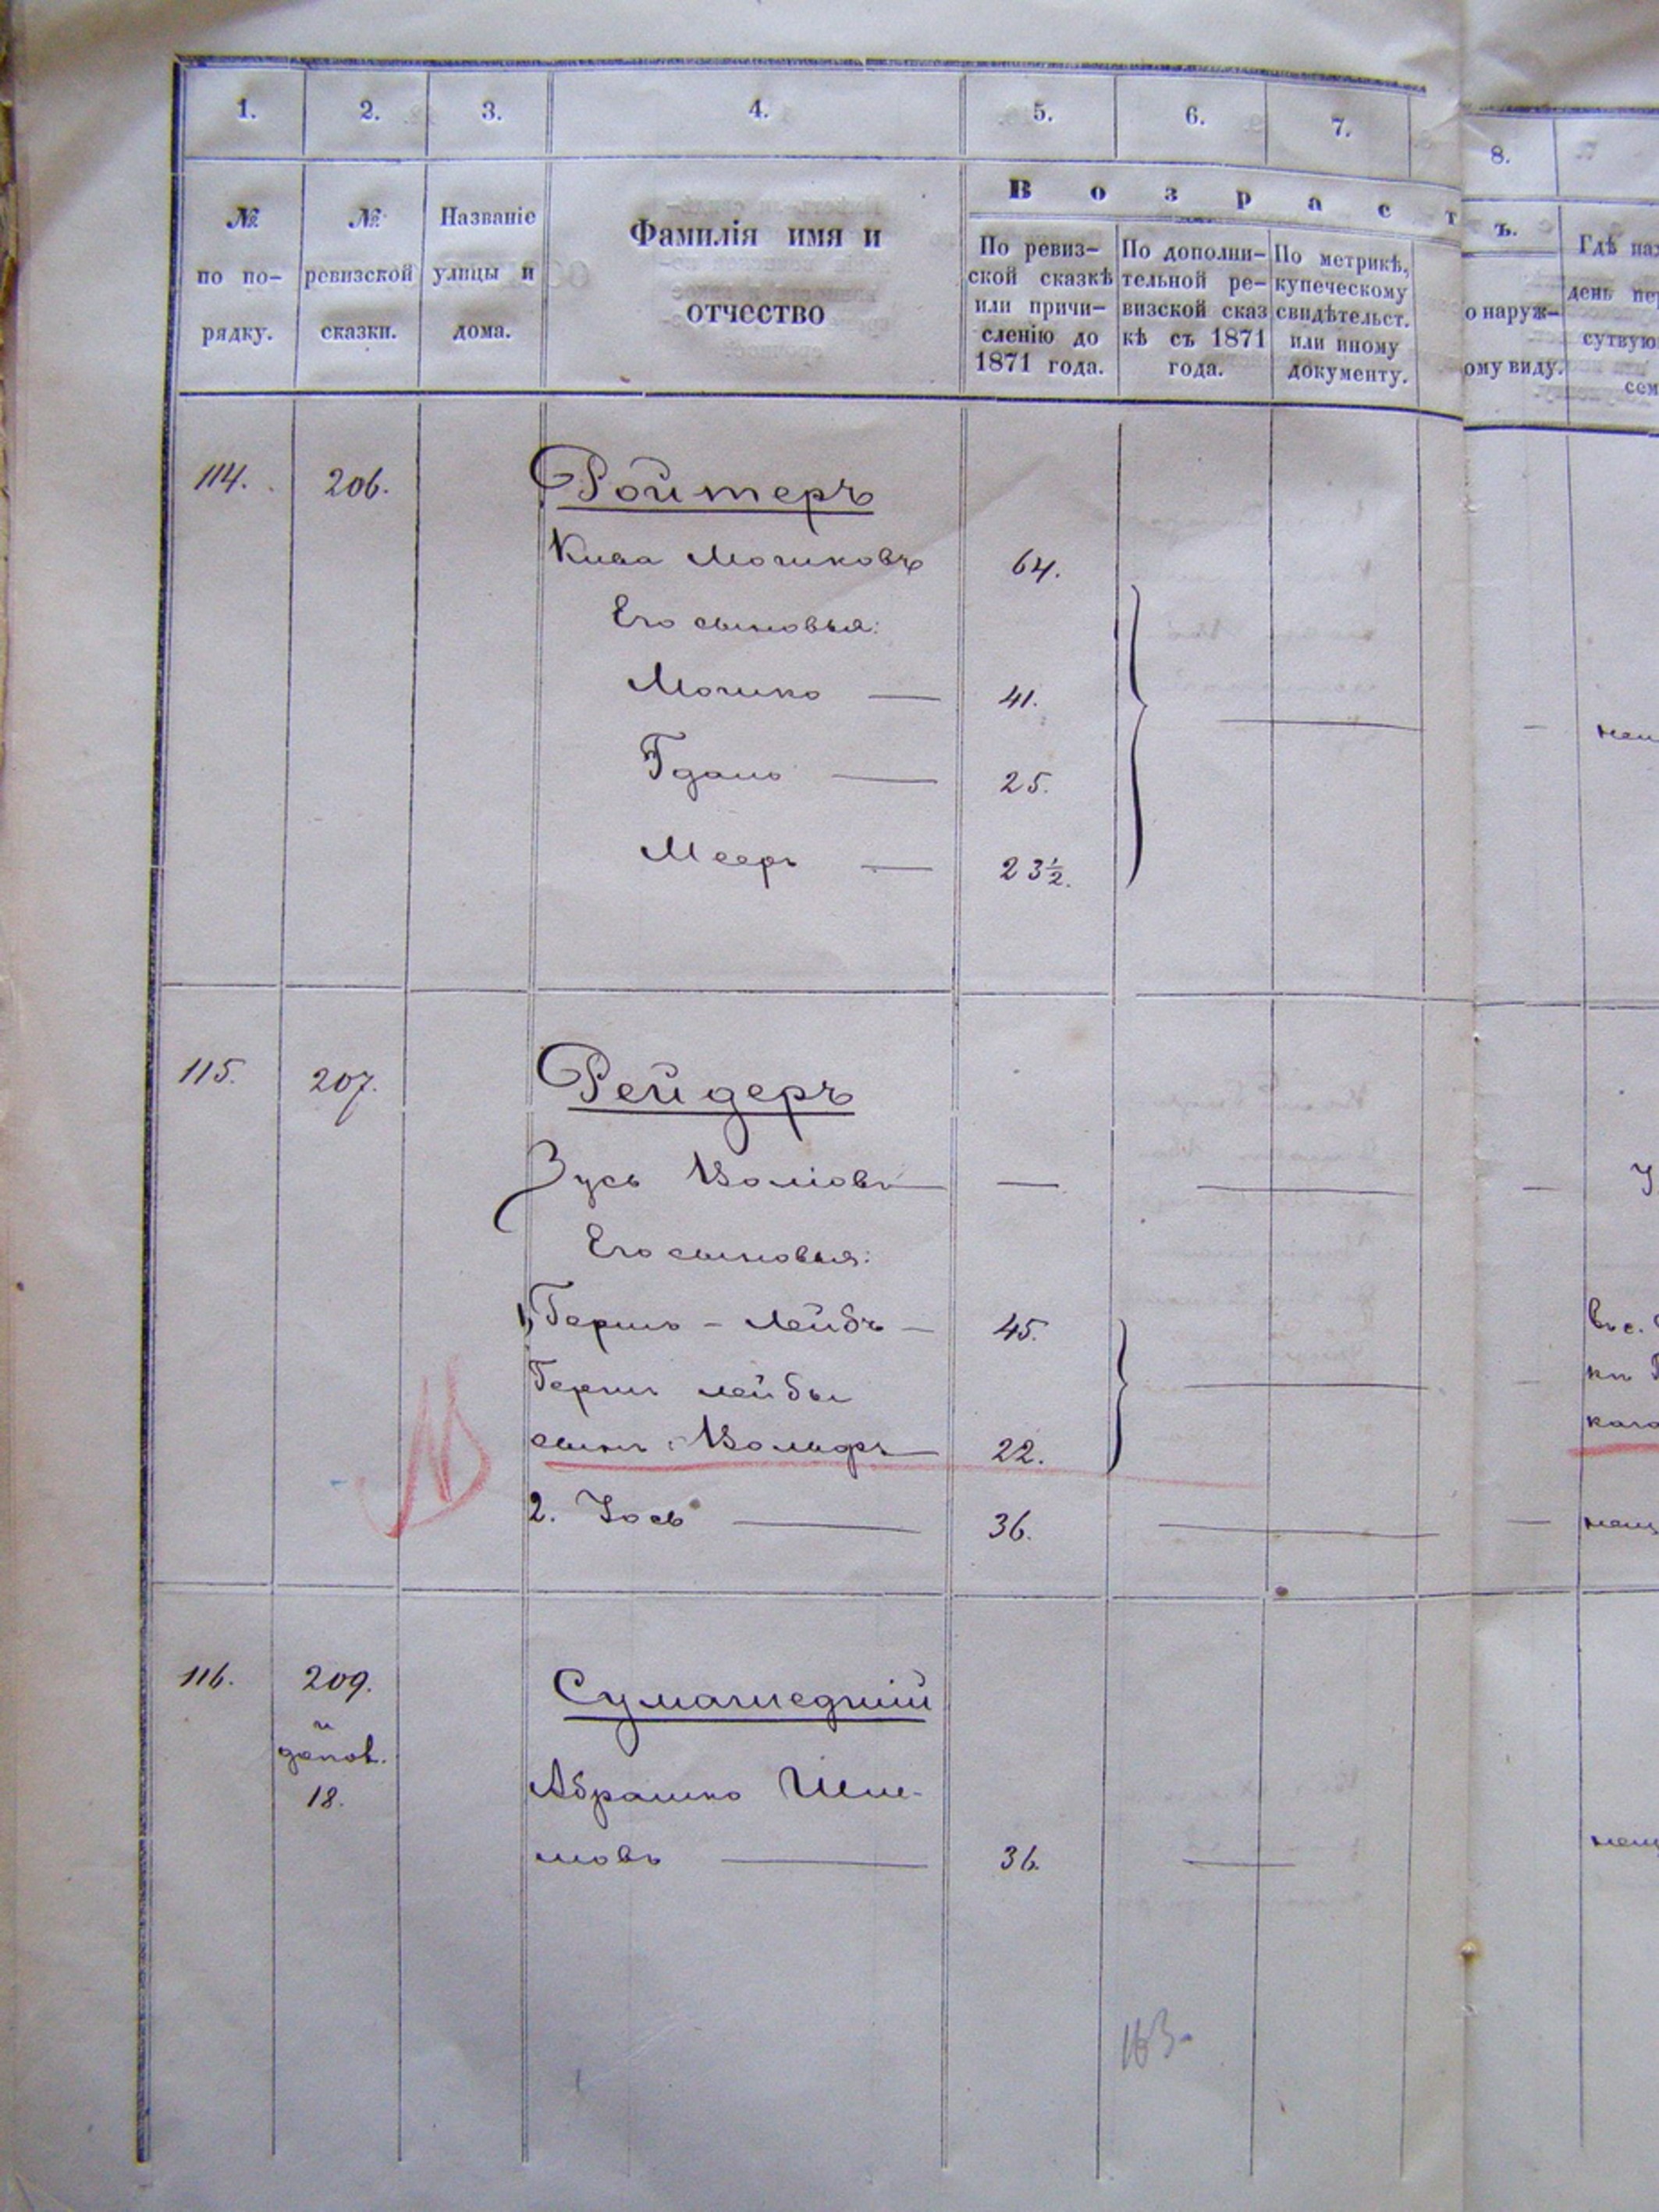 1. 2. 3. 4. 5. 6. 7. 8.
В о з р а с т
ъ.
№ по по- рядку.
№ ревизской сказки.
Названіе улицы и дома.
Фамилія имя и
отчество
По ревиз-
ской сказкѣ
или причи-
сленію до
1871 года.
По дополни-
тельной ре-
визской сказ
кѣ съ 1871
года.
По метрикѣ,
купеческому
свидѣтельст.
или иному
документу.
о наруж-
ому виду.
Гдѣ нах
день пер
сутвую
сем
114. 206. Ройтеръ
Кива Мошковъ 64.
Его сыновья:
Мошко — 41.
Гдаль — 25.
Мееръ — 23½.
115. 207. Рейдеръ
Зусь Волiовъ —
Его сыновья:
1, Гершъ - Лейбъ - 45.
Герша лейбы
сынъ: Вольфъ 22.
2. Іось — 36.
116. 209. Сумашедшій
и
допол.
18.
Абрашко Шле-
мовъ — 36.
163.